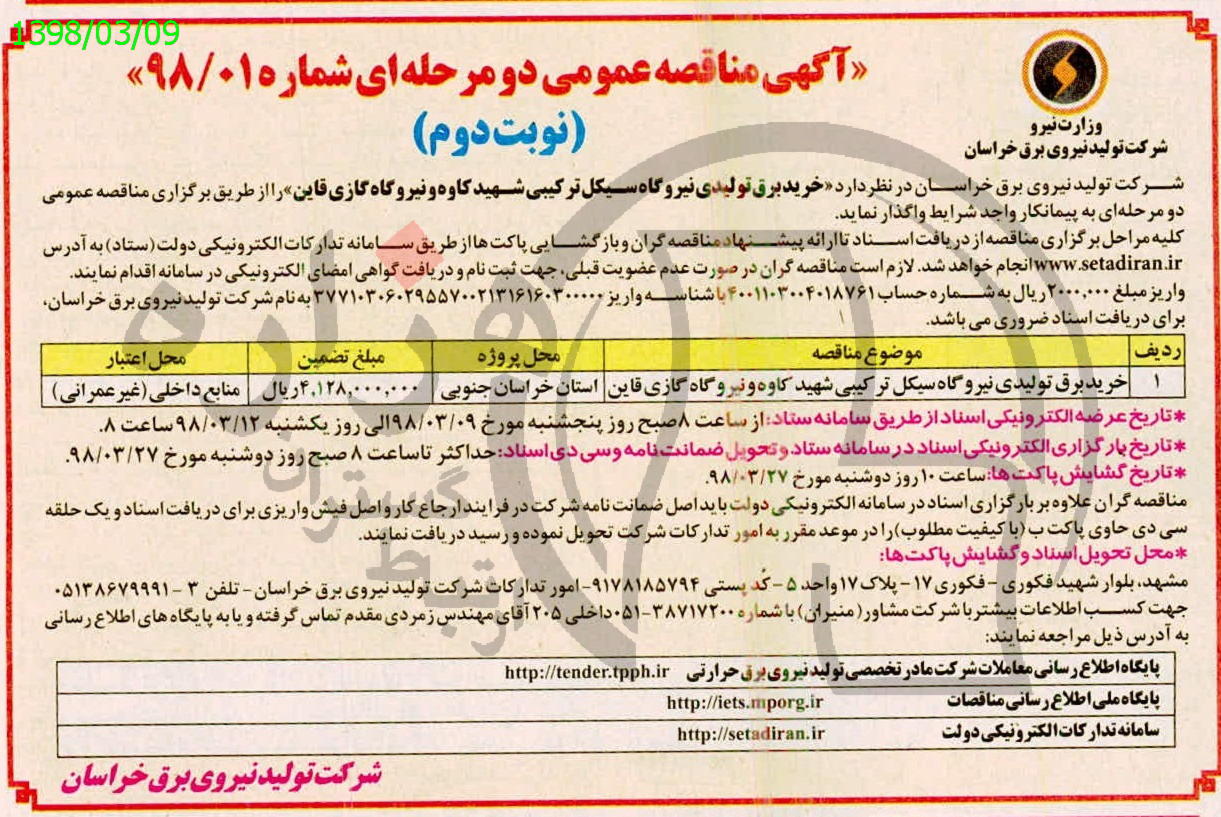 1398/03/09
«آگهی مناقصه عمومی دو مرحله ای شماره ۹۸/۰۱»
(نوبت دوم)
وزارت نیرو
شرکت تولید نیروی برق خراسان
شرکت تولید نیروی برق خراسان در نظر دارد «خرید برق تولیدی نیروگاه سیکل ترکیبی شهید کاوه و نیروگاه گازی قاین» را از طریق برگزاری مناقصه عمومی
دو مرحله‌ای به پیمانکار واجد شرایط واگذار نماید.
کلیه مراحل برگزاری مناقصه از دریافت اسناد تا ارائه پیشنهاد مناقصه گران و بازگشایی پاکت ها از طریق سامانه تدارکات الکترونیکی دولت (ستاد) به آدرس
www.setadiran.ir انجام خواهد شد. لازم است مناقصه گران در صورت عدم عضویت قبلی، جهت ثبت نام و دریافت گواهی امضای الکترونیکی در سامانه اقدام نمایند.
واریز مبلغ ۲۰۰۰,۰۰۰ ریال به شماره حساب ۴۰۰۱۱۰۳۰۰۴۰۱۸۷۶۱ با شناسه واریز ۳۷۷۱۰۳۰۶۰۲۹۵۵۷۰۰۲۱۳۱۶۱۶۰۳۰۰۰۰۰ به نام شرکت تولید نیروی برق خراسان،
برای دریافت اسناد ضروری می باشد.
ردیف موضوع مناقصه محل پروژه مبلغ تضمین محل اعتبار
۱ خرید برق تولیدی نیروگاه سیکل ترکیبی شهید کاوه و نیروگاه گازی قاین استان خراسان جنوبی ۴,۱۲۸,۰۰۰,۰۰۰ ریال منابع داخلی (غیر عمرانی)
*تاریخ عرضه الکترونیکی اسناد از طریق سامانه ستاد: از ساعت ۸ صبح روز پنجشنبه مورخ ۹۸/۰۳/۰۹ الی روز یکشنبه ۹۸/۰۳/۱۲ ساعت ۸.
*تاریخ بارگزاری الکترونیکی اسناد در سامانه ستاد و تحویل ضمانت نامه و سی دی اسناد: حداکثر تا ساعت ۸ صبح روز دوشنبه مورخ ۹۸/۰۳/۲۷.
*تاریخ گشایش پاکت ها: ساعت ۱۰ روز دوشنبه مورخ ۹۸/۰۳/۲۷.
مناقصه گران علاوه بر بارگزاری اسناد در سامانه الکترونیکی دولت باید اصل ضمانت نامه شرکت در فرایند ارجاع کار و اصل فیش واریزی برای دریافت اسناد و یک حلقه
سی دی حاوی پاکت ب (با کیفیت مطلوب) را در موعد مقرر به امور تدارکات شرکت تحویل نموده و رسید دریافت نمایند.
*محل تحویل اسناد و گشایش پاکت ها:
مشهد، بلوار شهید فکوری - فکوری ۱۷ - پلاک ۱۷ واحد ۵ - کد پستی ۹۱۷۸۱۸۵۷۹۴ - امور تدارکات شرکت تولید نیروی برق خراسان - تلفن ۳ - ۰۵۱۳۸۶۷۹۹۹۱
جهت کسب اطلاعات بیشتر با شرکت مشاور (منیران) با شماره ۳۸۷۱۷۲۰۰-۰۵۱ داخلی ۲۰۵ آقای مهندس زمردی مقدم تماس گرفته و یا به پایگاه های اطلاع رسانی
به آدرس ذیل مراجعه نمایند:
پایگاه اطلاع رسانی معاملات شرکت مادر تخصصی تولید نیروی برق حرارتی http://tender.tpph.ir
پایگاه ملی اطلاع رسانی مناقصات http://iets.mporg.ir
سامانه تدارکات الکترونیکی دولت http://setadiran.ir
شرکت تولید نیروی برق خراسان